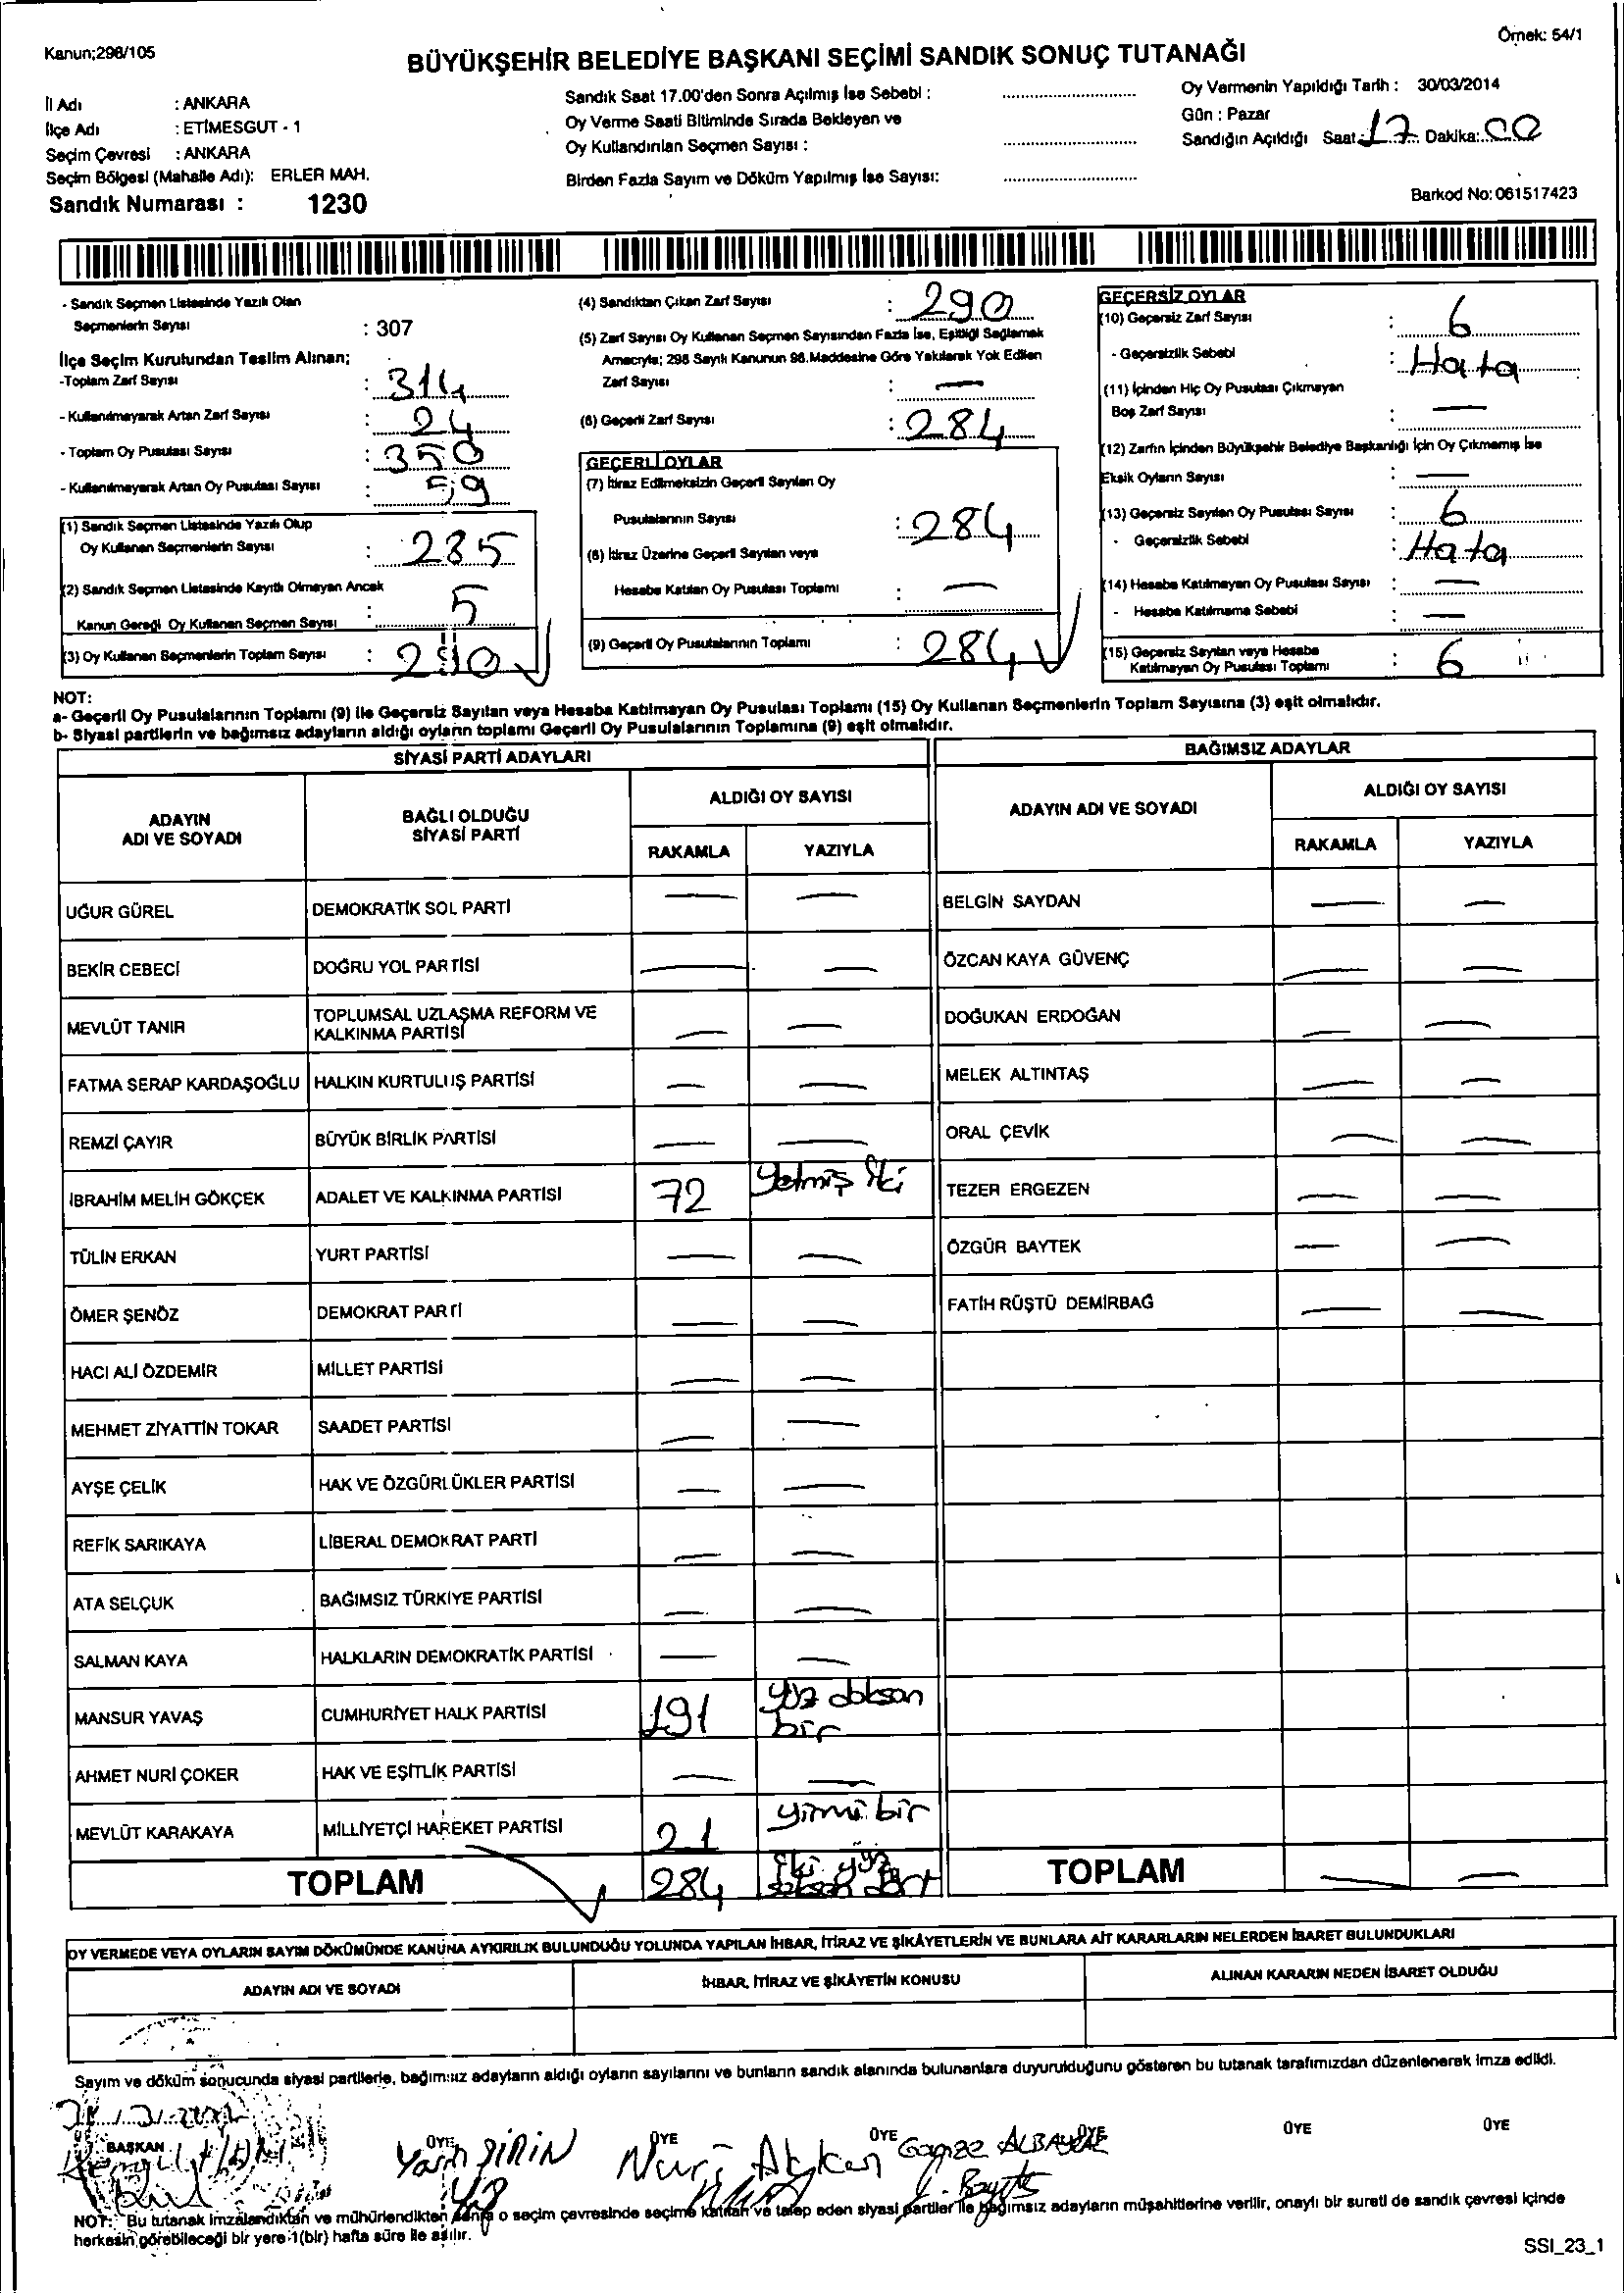 Kanun;298/105
Örnek: 54/1
BÜYÜKŞEHİR BELEDİYE BAŞKANI SEÇİMİ SANDIK SONUÇ TUTANAĞI
İl Adı : ANKARA
İlçe Adı : ETİMESGUT - 1
Seçim Çevresi : ANKARA
Seçim Bölgesi (Mahalle Adı): ERLER MAH.
Sandık Numarası : 1230
Sandık Saat 17.00'den Sonra Açılmış İse Sebebi :
Oy Verme Saati Bitiminde Sırada Bekleyen ve
Oy Kullandırılan Seçmen Sayısı :
Birden Fazla Sayım ve Döküm Yapılmış İse Sayısı:
Oy Vermenin Yapıldığı Tarih : 30/03/2014
Gün : Pazar
Sandığın Açıldığı Saat: 17 Dakika: 00
Barkod No: 061517423
- Sandık Seçmen Listesinde Yazılı Olan
Seçmenlerin Sayısı : 307
İlçe Seçim Kurulundan Teslim Alınan;
-Toplam Zarf Sayısı : 314
- Kullanılmayarak Artan Zarf Sayısı : 24
- Toplam Oy Pusulası Sayısı : 350
- Kullanılmayarak Artan Oy Pusulası Sayısı : 59
(1) Sandık Seçmen Listesinde Yazılı Olup
Oy Kullanan Seçmenlerin Sayısı : 285
(2) Sandık Seçmen Listesinde Kayıtlı Olmayan Ancak
Kanun Gereği Oy Kullanan Seçmen Sayısı : 5
(3) Oy Kullanan Seçmenlerin Toplam Sayısı : 290
(4) Sandıktan Çıkan Zarf Sayısı : 290
(5) Zarf Sayısı Oy Kullanan Seçmen Sayısından Fazla İse, Eşitliği Sağlamak
Amacıyla; 298 Sayılı Kanunun 98.Maddesine Göre Yakılarak Yok Edilen
Zarf Sayısı : —
(6) Geçerli Zarf Sayısı : 284
GEÇERLİ OYLAR
(7) İtiraz Edilmeksizin Geçerli Sayılan Oy
Pusulalarının Sayısı : 284
(8) İtiraz Üzerine Geçerli Sayılan veya
Hesaba Katılan Oy Pusulası Toplamı : —
(9) Geçerli Oy Pusulalarının Toplamı : 284
GEÇERSİZ OYLAR
(10) Geçersiz Zarf Sayısı : 6
- Geçersizlik Sebebi : Hata
(11) İçinden Hiç Oy Pusulası Çıkmayan
Boş Zarf Sayısı : —
(12) Zarfın İçinden Büyükşehir Belediye Başkanlığı İçin Oy Çıkmamış İse
Eksik Oyların Sayısı : —
(13) Geçersiz Sayılan Oy Pusulası Sayısı : 6
- Geçersizlik Sebebi : Hata
(14) Hesaba Katılmayan Oy Pusulası Sayısı : —
- Hesaba Katılmama Sebebi : —
(15) Geçersiz Sayılan veya Hesaba
Katılmayan Oy Pusulası Toplamı : 6
NOT:
a- Geçerli Oy Pusulalarının Toplamı (9) ile Geçersiz Sayılan veya Hesaba Katılmayan Oy Pusulası Toplamı (15) Oy Kullanan Seçmenlerin Toplam Sayısına (3) eşit olmalıdır.
b- Siyasi partilerin ve bağımsız adayların aldığı oyların toplamı Geçerli Oy Pusulalarının Toplamına (9) eşit olmalıdır.
SİYASİ PARTİ ADAYLARI
ADAYIN
ADI VE SOYADI
BAĞLI OLDUĞU
SİYASİ PARTİ
ALDIĞI OY SAYISI
RAKAMLA YAZIYLA
UĞUR GÜREL DEMOKRATİK SOL PARTİ — —
BEKİR CEBECİ DOĞRU YOL PARTİSİ — —
MEVLÜT TANIR TOPLUMSAL UZLAŞMA REFORM VE
KALKINMA PARTİSİ — —
FATMA SERAP KARDAŞOĞLU HALKIN KURTULUŞ PARTİSİ — —
REMZİ ÇAYIR BÜYÜK BİRLİK PARTİSİ — —
İBRAHİM MELİH GÖKÇEK ADALET VE KALKINMA PARTİSİ 72 Yetmiş iki
TÜLİN ERKAN YURT PARTİSİ — —
ÖMER ŞENÖZ DEMOKRAT PARTİ — —
HACI ALİ ÖZDEMİR MİLLET PARTİSİ — —
MEHMET ZİYATTİN TOKAR SAADET PARTİSİ — —
AYŞE ÇELİK HAK VE ÖZGÜRLÜKLER PARTİSİ — —
REFİK SARIKAYA LİBERAL DEMOKRAT PARTİ — —
ATA SELÇUK BAĞIMSIZ TÜRKİYE PARTİSİ — —
SALMAN KAYA HALKLARIN DEMOKRATİK PARTİSİ — —
MANSUR YAVAŞ CUMHURİYET HALK PARTİSİ 191 Yüz doksan
bir
AHMET NURİ ÇOKER HAK VE EŞİTLİK PARTİSİ — —
MEVLÜT KARAKAYA MİLLİYETÇİ HAREKET PARTİSİ 21 yirmi bir
TOPLAM 284 iki yüz
seksen dört
BAĞIMSIZ ADAYLAR
ADAYIN ADI VE SOYADI
ALDIĞI OY SAYISI
RAKAMLA YAZIYLA
BELGİN SAYDAN — —
ÖZCAN KAYA GÜVENÇ — —
DOĞUKAN ERDOĞAN — —
MELEK ALTINTAŞ — —
ORAL ÇEVİK — —
TEZER ERGEZEN — —
ÖZGÜR BAYTEK — —
FATİH RÜŞTÜ DEMİRBAĞ — —
TOPLAM — —
OY VERMEDE VEYA OYLARIN SAYIM DÖKÜMÜNDE KANUNA AYKIRILIK BULUNDUĞU YOLUNDA YAPILAN İHBAR, İTİRAZ VE ŞİKÂYETLERİN VE BUNLARA AİT KARARLARIN NELERDEN İBARET BULUNDUKLARI
ADAYIN ADI VE SOYADI
İHBAR, İTİRAZ VE ŞİKÂYETİN KONUSU
ALINAN KARARIN NEDEN İBARET OLDUĞU
Sayım ve döküm sonucunda siyasi partilerle, bağımsız adayların aldığı oyların sayılarını ve bunların sandık alanında bulunanlara duyurulduğunu gösteren bu tutanak tarafımızdan düzenlenerek imza edildi.
BAŞKAN ÜYE ÜYE ÜYE ÜYE ÜYE
Nuri
NOT: Bu tutanak imzalandıktan ve mühürlendikten sonra o seçim çevresinde seçime katılan ve talep eden siyasi partiler ile bağımsız adayların müşahitlerine verilir, onaylı bir sureti de sandık çevresi içinde
herkesin görebileceği bir yere 1(bir) hafta süre ile asılır.
SSI_23_1